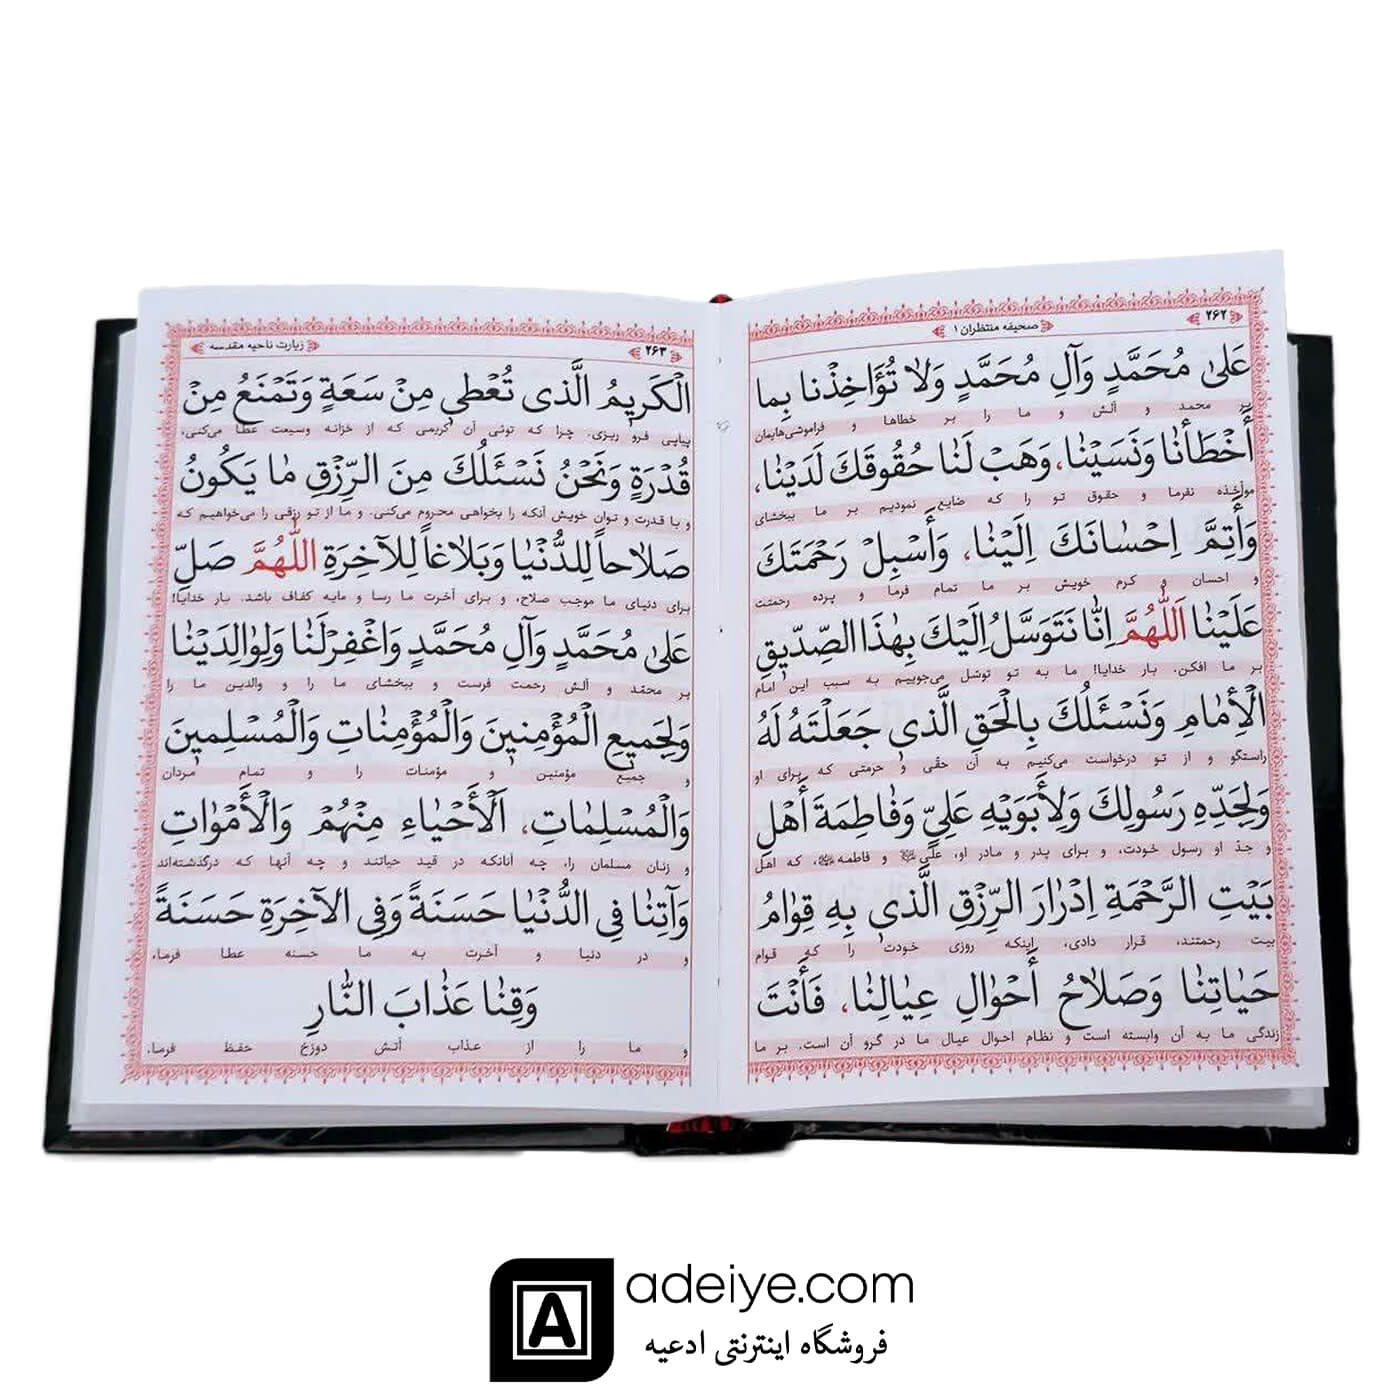 ۲۶۲
صحیفه منتظران ۱
عَلىٰ مُحَمَّدٍ وَآلِ مُحَمَّدٍ وَلاٰ تُؤَاخِذْنا بِما
بر محمد و آلش و ما را بر خطاها و فراموشی‌هایمان
أَخْطَأْنٰا وَنَسَيْنٰا، وَهَبْ لَنٰا حُقُوقَكَ لَدَيْنٰا،
مواخذه نفرما و حقوق تو را که ضایع نمودیم بر ما ببخشای
وَأَتِمَّ اِحْسٰانَكَ اِلَيْنٰا، وَأَسْبِلْ رَحْمَتَكَ
و احسان و کرم خویش بر ما تمام فرما و پرده رحمتت
عَلَيْنٰا اَللّٰهُمَّ اِنّٰا نَتَوَسَّلُ اِلَيْكَ بِهٰذَا الصِّدّيقِ
بر ما افکن. بار خدایا! ما به تو توسّل می‌جوییم به سبب این امام
الْأِمٰامِ وَنَسْئَلُكَ بِالْحَقِ الَّذى جَعَلْتَهُ لَهُ
راستگو و از تو درخواست می‌کنیم به آن حقّی و حرمتی که برای او
وَلِجَدِّهِ رَسُولِكَ وَلِأَبَوَيْهِ عَلِىٍّ وَفٰاطِمَةَ أَهْلِ
و جدّ او رسول خودت، و برای پدر و مادر او، علی و فاطمه، که اهل
بَيْتِ الرَّحْمَةِ اِدْرٰارَ الرِّزْقِ الَّذى بِهِ قِوٰامُ
بیت رحمتند، قرار دادی، اینکه روزی خودت را که قوام
حَيٰاتِنٰا وَصَلاٰحُ أَحْوٰالِ عِيٰالِنٰا، فَأَنْتَ
زندگی ما به آن وابسته است و نظام احوال عیال ما در گرو آن است. بر ما
۲۶۳
زیارت ناحیه مقدسه
الْكَرِيمُ الَّذى تُعْطى مِنْ سَعَةٍ وَتَمْنَعُ مِنْ
پیاپی فرو ریزی. چرا که توئی آن کریمی که از خزانه وسیعت عطا می‌کنی،
قُدْرَةٍ وَنَحْنُ نَسْئَلُكَ مِنَ الرِّزْقِ مٰا يَكُونُ
و با قدرت و توان خویش آنکه را بخواهی محروم می‌کنی. و ما از تو رزقی را می‌خواهیم که
صَلاٰحاً لِلدُّنْيٰا وَبَلاٰغاً لِلآخِرَةِ اللّٰهُمَّ صَلِّ
برای دنیای ما موجب صلاح، و برای آخرت ما رسا و مایه کفاف باشد. بار خدایا!
عَلىٰ مُحَمَّدٍ وَآلِ مُحَمَّدٍ وَاغْفِرْلَنٰا وَلِوٰالِدَيْنٰا
بر محمّد و آلش رحمت فرست و ببخشای ما را و والدین ما را
وَلِجَميعِ الْمُؤْمِنينَ وَالْمُؤْمِنٰاتِ وَالْمُسْلِمينَ
و جمیع مؤمنین و مؤمنات را و تمام مردان
وَالْمُسْلِمٰاتِ، اَلْأَحْيٰاءِ مِنْهُمْ وَالْأَمْوٰاتِ
و زنان مسلمان را، چه آنانکه در قید حیاتند و چه آنها که درگذشته‌اند
وَآتِنٰا فِى الدُّنْيٰا حَسَنَةً وَفِى الآخِرَةِ حَسَنَةً
و در دنیا و آخرت به ما حسنه عطا فرما،
وَقِنٰا عَذٰابَ النّٰارِ
و ما را از عذاب آتش دوزخ حفظ فرما.
A
adeiye.com
فروشگاه اینترنتی ادعیه